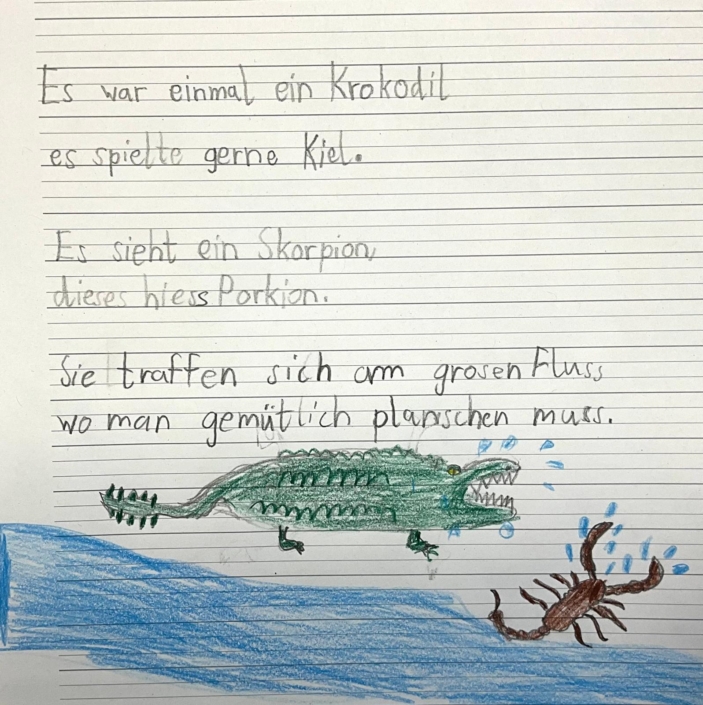 Es war einmal ein Krokodil
es spielte gerne Kiel.
Es sieht ein Skorpion,
dieses hiess Porkion.
Sie traffen sich am grosen Fluss,
wo man gemütlich planschen muss.